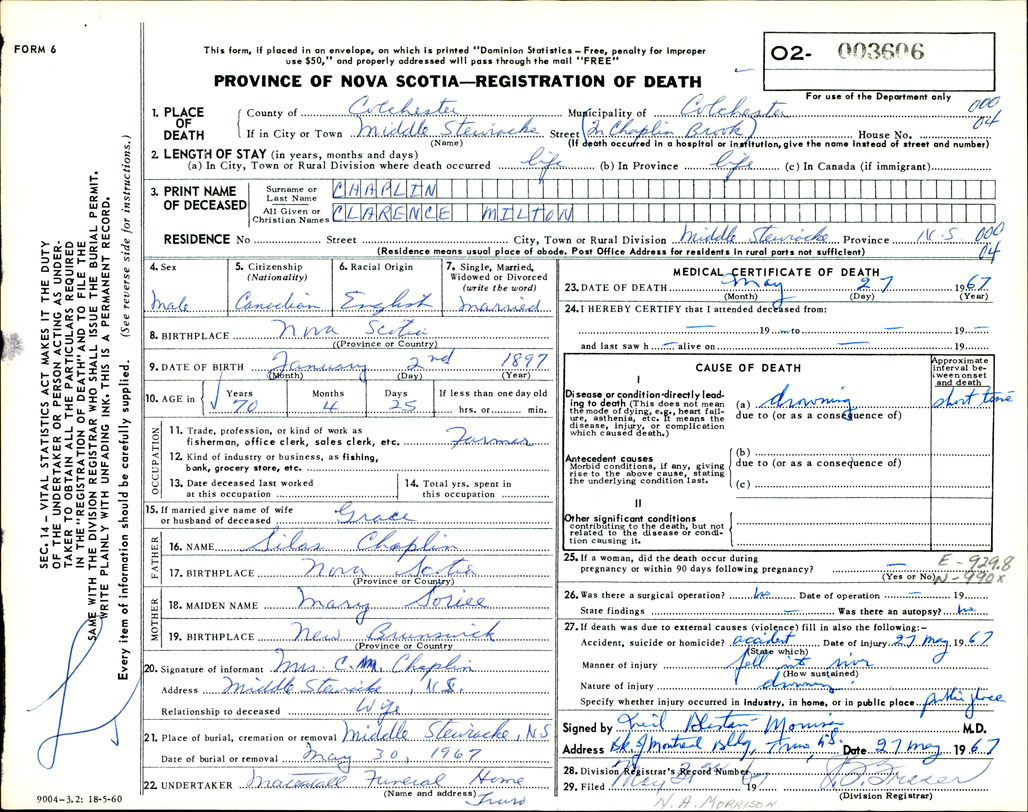 FORM 6
This form, if placed in an envelope, on which is printed "Dominion Statistics – Free, penalty for improper
use $50," and properly addressed will pass through the mail "FREE"
PROVINCE OF NOVA SCOTIA—REGISTRATION OF DEATH
O2- 003606
For use of the Department only
1. PLACE OF DEATH
County of Colchester Municipality of Colchester 000
If in City or Town Middle Stewiacke Street (In Chaplin Brook) House No. 04
(Name) (If death occurred in a hospital or institution, give the name instead of street and number)
2. LENGTH OF STAY (in years, months and days)
(a) In City, Town or Rural Division where death occurred life (b) In Province life (c) In Canada (if immigrant)
3. PRINT NAME OF DECEASED
Surname or Last Name CHAPLIN
All Given or Christian Names CLARENCE MILTON
RESIDENCE No Street City, Town or Rural Division Middle Stewiacke Province N.S 000
(Residence means usual place of abode. Post Office Address for residents in rural parts not sufficient) 04
4. Sex
Male
5. Citizenship
(Nationality)
Canadian
6. Racial Origin
English
7. Single, Married,
Widowed or Divorced
(write the word)
married
8. BIRTHPLACE Nova Scotia
(Province or Country)
9. DATE OF BIRTH January 2nd 1897
(Month) (Day) (Year)
10. AGE in Years Months Days If less than one day old
70 4 25 hrs. or min.
OCCUPATION
11. Trade, profession, or kind of work as
fisherman, office clerk, sales clerk, etc. Farmer
12. Kind of industry or business, as fishing,
bank, grocery store, etc.
13. Date deceased last worked
at this occupation
14. Total yrs. spent in
this occupation
15. If married give name of wife
or husband of deceased Grace
FATHER
16. NAME Silas Chaplin
17. BIRTHPLACE Nova Scotia
(Province or Country)
MOTHER
18. MAIDEN NAME Mary
19. BIRTHPLACE New Brunswick
(Province or Country)
20. Signature of informant Mrs C. M. Chaplin
Address Middle Stewiacke, N.S.
Relationship to deceased Wife
21. Place of burial, cremation or removal Middle Stewiacke, NS
Date of burial or removal May 30, 1967
22. UNDERTAKER Mattatall Funeral Home
(Name and address) Truro
9004–3.2: 18-5-60
MEDICAL CERTIFICATE OF DEATH
23. DATE OF DEATH May 27 1967
(Month) (Day) (Year)
24. I HEREBY CERTIFY that I attended deceased from:
— 19 — to — 19 —
and last saw h — alive on — 19
CAUSE OF DEATH
Approximate
interval be-
tween onset
and death
I
Disease or condition directly lead-
ing to death (This does not mean
the mode of dying, e.g., heart fail-
ure, asthenia, etc. It means the
disease, injury, or complication
which caused death.)
(a) drowning short time
due to (or as a consequence of)
Antecedent causes
Morbid conditions, if any, giving
rise to the above cause, stating
the underlying condition last.
(b)
due to (or as a consequence of)
(c)
II
Other significant conditions
contributing to the death, but not
related to the disease or condi-
tion causing it.
25. If a woman, did the death occur during
pregnancy or within 90 days following pregnancy? —
(Yes or No)
E - 929.8
N - 990x
26. Was there a surgical operation? no Date of operation — 19
State findings — Was there an autopsy? no
27. If death was due to external causes (violence) fill in also the following:–
Accident, suicide or homicide? accident Date of injury 27 May 1967
(State which)
Manner of injury fell into river
(How sustained)
Nature of injury drowning
Specify whether injury occurred in Industry, in home, or in public place public place
Signed by M.D.
Address Bk of Montreal Bldg, Truro NS. Date 27 May 1967
28. Division Registrar's Record Number
29. Filed May 19
(Division Registrar)
N. A. MORRISON
SEC. 14 – VITAL STATISTICS ACT MAKES IT THE DUTY
OF THE UNDERTAKER OR PERSON ACTING AS UNDER-
TAKER TO OBTAIN ALL THE PARTICULARS REQUIRED
IN THE "REGISTRATION OF DEATH" AND TO FILE THE
SAME WITH THE DIVISION REGISTRAR WHO SHALL ISSUE THE BURIAL PERMIT.
WRITE PLAINLY WITH UNFADING INK. THIS IS A PERMANENT RECORD.
Every item of information should be carefully supplied. (See reverse side for instructions.)